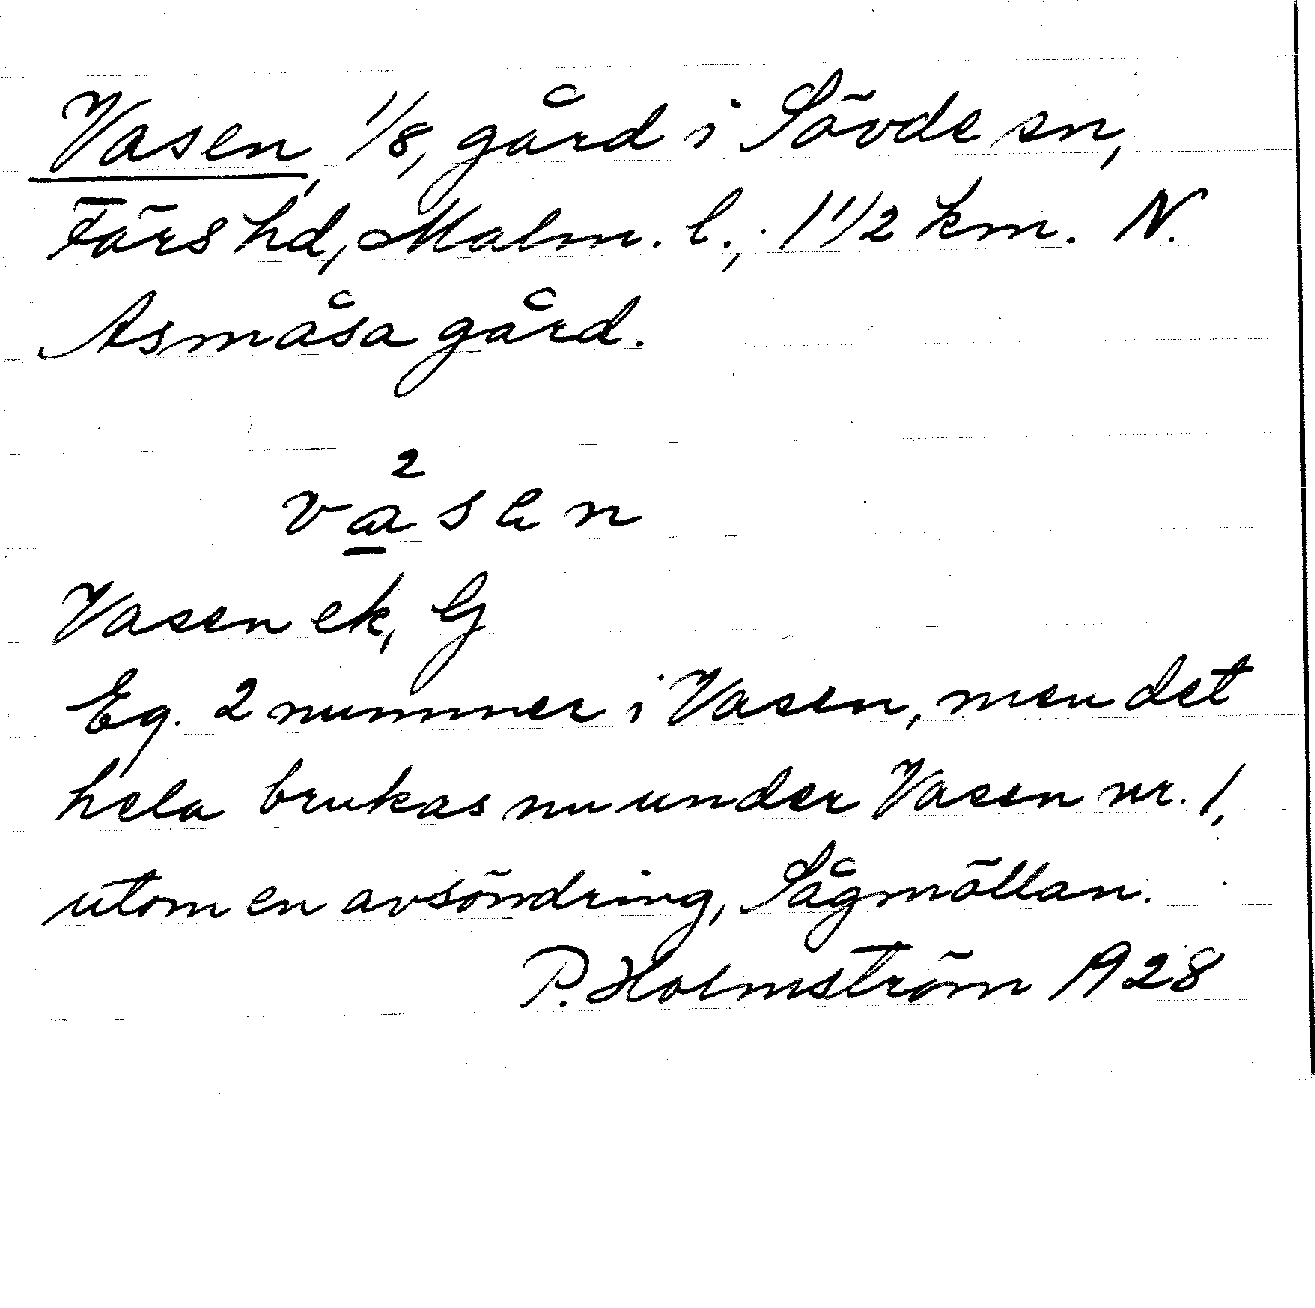 Vasen, 1/8, gård i Sövde sn,
Färs hd, Malm. l.; 1 1/2 km. N.
Asmåsa gård.
2
vasen
Vasen ek, G
Eg. 2 nummer i Vasen, men det
hela brukas nu under Vasen nr. 1,
utom en avsöndring, Sågmöllan.
P. Holmström 1928